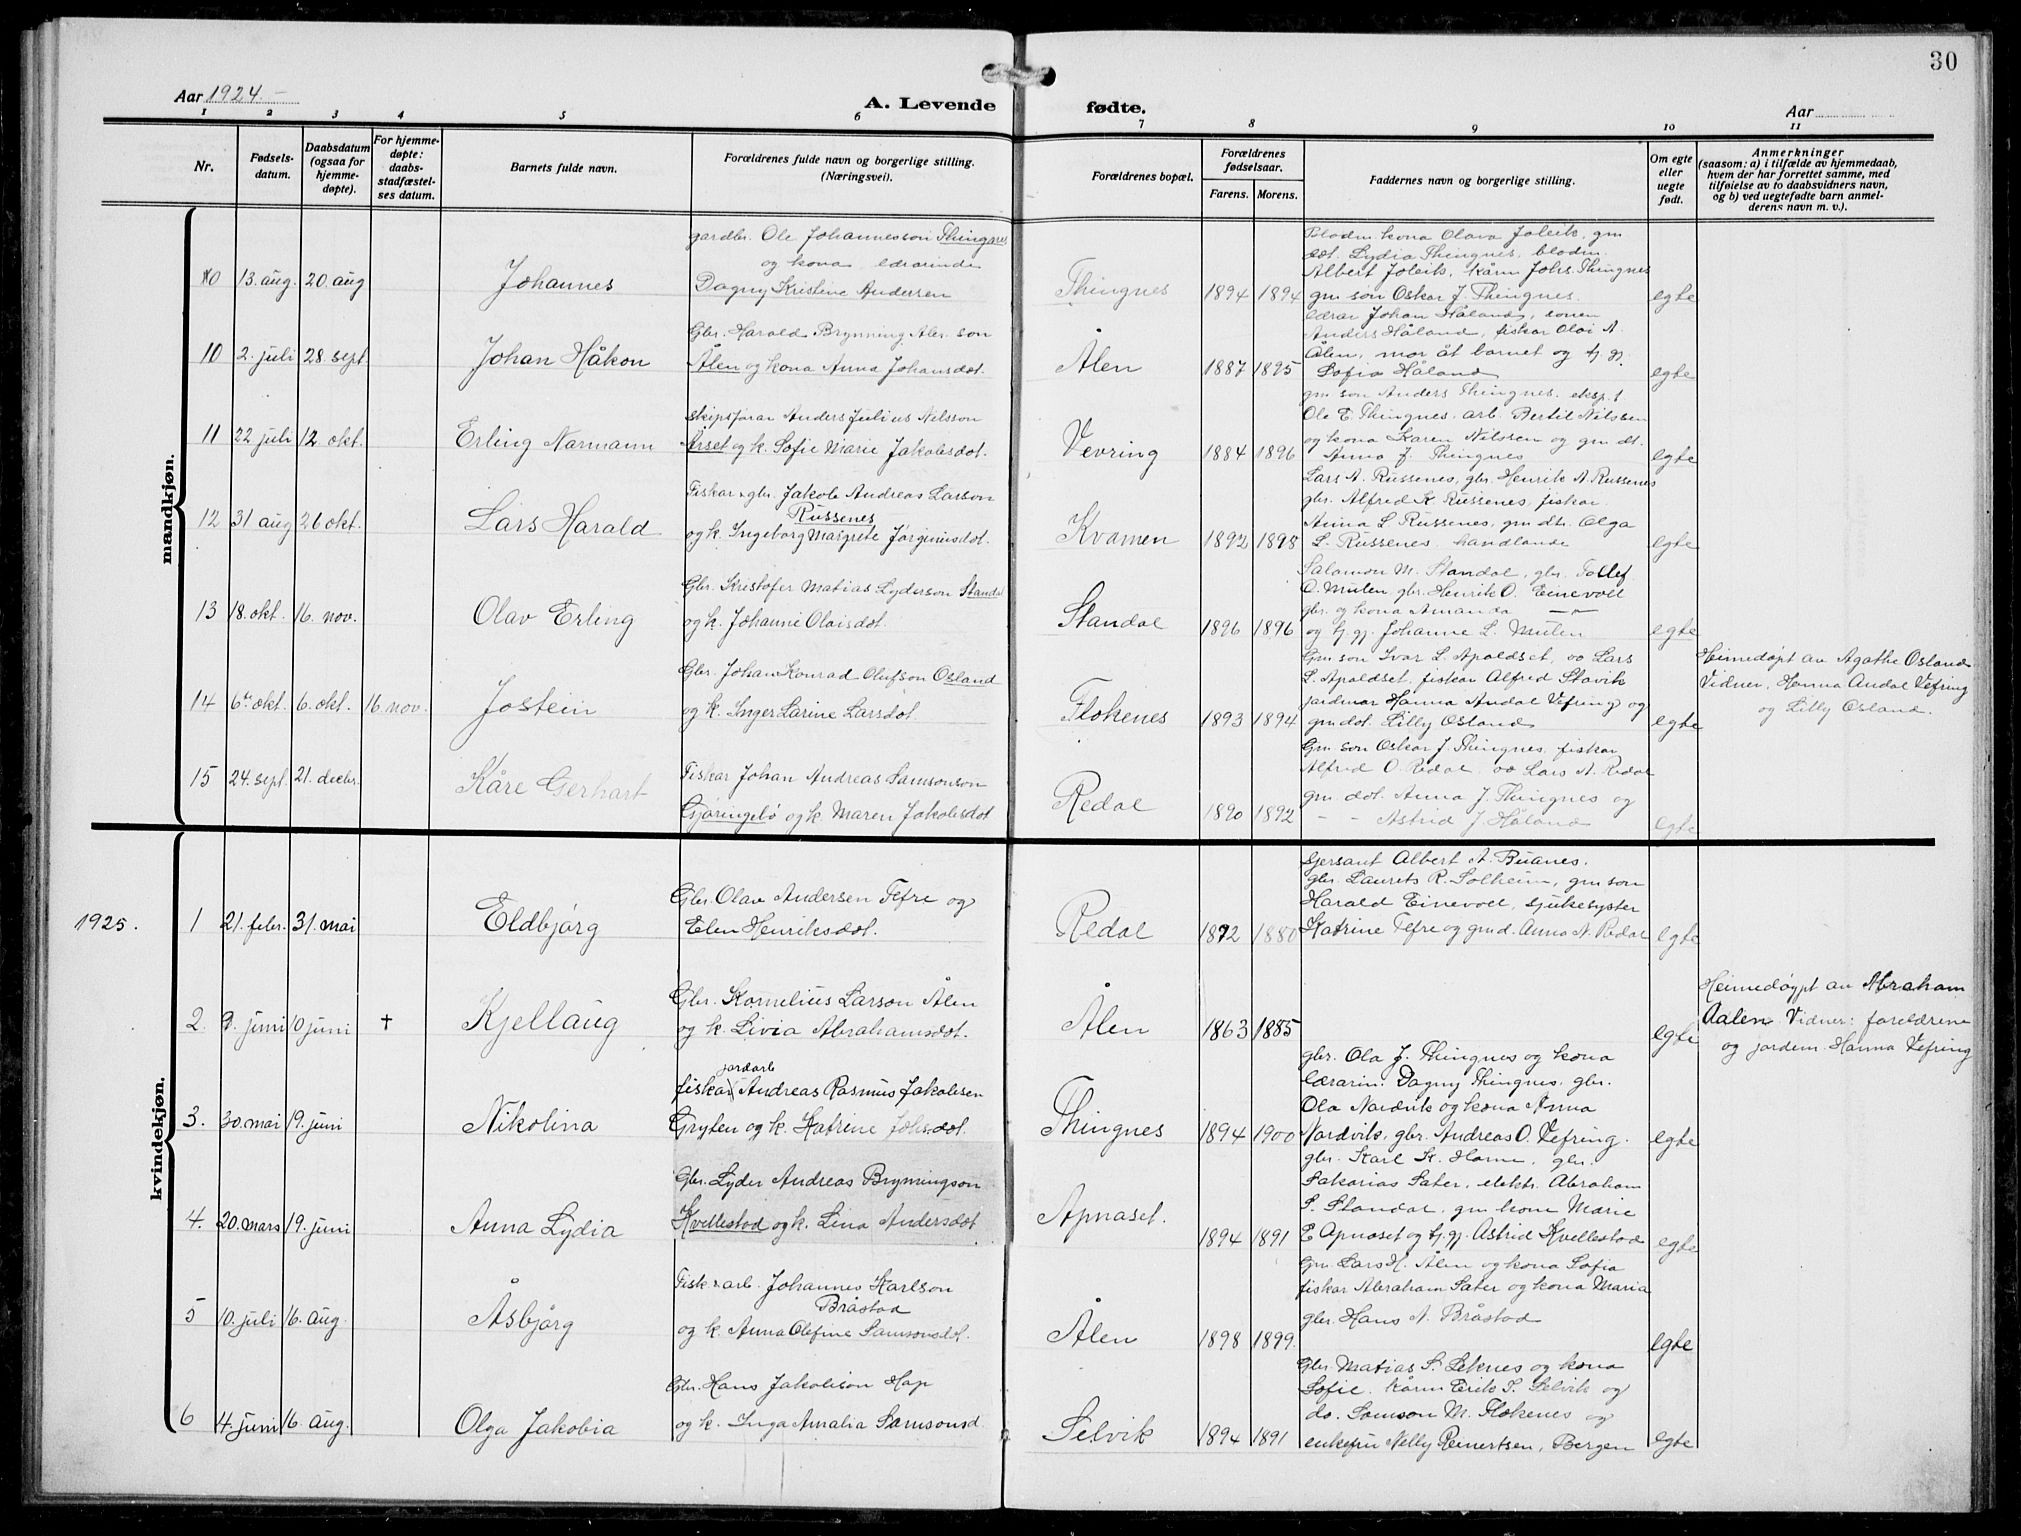 30
Aar 1924.
A. Levende fødte.
Aar
1 2 3 4 5 6 7 8 9 10 11
Nr.
Fødsels-
datum.
Daabsdatum
(ogsaa for
hjemme-
døpte).
For hjemme-
døpte:
daabs-
stadfæstel-
ses datum.
Barnets fulde navn.
Forældrenes fulde navn og borgerlige stilling.
(Næringsvei).
Forældrenes bopæl.
Forældrenes
fødselsaar.
Farens. Morens.
Faddernes navn og borgerlige stilling.
Om egte
eller
uegte
født.
Anmerkninger
(saasom: a) i tilfælde av hjemmedaab,
hvem der har forrettet samme, med
tilføielse av to daabsvidners navn,
og b) ved uegtefødte barn anmel-
derens navn m. v.).
mandkjøn.
gardbr. Ole Johannesson Thingnes
og kona lærarinde
Dagny Kristine Andersen
13. aug. 20. aug Johannes
Thingnes 1894 1894
kona Olava Joleik, gm
dot. Lydia Thingnes,
Albert Joleik, kårm Johs. Thingnes
gm son Oskar J. Thingnes.
egte
Gbr. Harald Brynning Abr. son
Ålen og kona Anna Johansdot.
10 2. juli 28. sept Johan Håkon
Ålen 1887 1895
lærar Johan Håland, sonen
Anders Håland, fiskar Olai A.
Ålen, mor åt barnet og tj. gj.
Sofia Håland
egte
skipsførar Anders Julius Nilsson
Årset og k. Sofie Marie Jakobsdot.
11 22 juli 12. okt. Erling Normann
Vevring 1884 1896
gm son Anders Thingnes. eksp.
Ole E. Thingnes. arb. Bertil Nilssen
og kona Karen Nilssen og gm dt.
Anna J. Thingnes
egte
Fiskar, gbr. Jakob Andreas Larson
Russenes
og k. Ingeborg Margrete Jørginusdot.
12 31 aug 26 okt. Lars Harald
Kvamen 1892 1898
Lars A. Russenes, gbr. Henrik A. Russenes
gbr. Alfred K Russenes, fiskar
Anna L Russenes, gm dtr. Olga
L. Russenes. handlande
egte
Gbr. Kristofer Matias Lyderson Standal
og k. Johanne Olaisdot.
13 18. okt. 16. nov. Olav Erling
Standal 1896 1896
Salamon M. Standal, gbr. Tollef
O. Mulen gbr. Henrik O. Einevoll
gbr. og kona Amanda
og tj. gj. Johanne L. Mulen
egte
Gbr. Johan Konrad Olufson Osland
og k. Inger Larine Larsdot.
14 6te okt. 6. okt. 16. nov. Jostein
Flokenes 1893 1894
Gm son Ivar L. Apaldset, do Lars
L. Apaldset, fiskar Alfred Stavik
jordmor Hanna Andal Vefring og
gm dot. Lilly Osland
egte
Heimedøpt av Agathe Osland
Vidner, Hanna Andal Vefring
og Lilly Osland.
Fiskar Johan Andreas Samsonson
Gjøringebø og k. Maren Jakobsdot
15 24. sept. 21. decbr. Kåre Gerhart
Redal 1890 1892
Gm son Oskar J. Thingnes, fiskar
Alfred O. Redal, do Lars A. Redal
gm dot. Anna J. Thingnes og
- - Astrid J. Håland
egte
kvindekjøn.
1925.
Gbr. Olav Andersen Tefre og
Elen Henriksdot.
1 21. febr. 31. mai Eldbjørg
Redal 1872 1880
sjersant Albert A. Buanes.
gbr. Laurets R. Solheim, gm son
Harald Einevoll, sjukesyster
Katrine Tefre og gmd. Anna N. Redal
egte
Gbr. Kornelius Larson Ålen
og k. Livia Abrahamsdot.
2. 9. juni 10 juni † Kjellaug
Ålen 1863 1885
egte
Heimedøypt av Abraham
Aalen. Vidner: foreldrene
og jordm. Hanna Vefring
jordarb
fiskar Andreas Rasmus Jakobsen
Gryten og k. Katrine Johsdot.
3. 30. mai 19. juni Nikolina
Thingnes 1894 1900
gbr. Ola J. Thingnes og kona
lærarin. Dagny Thingnes. gbr.
Ola Nordvik og kona Anna
Nordvik, gbr. Andreas O. Vefring.
egte
Gbr. Lyder Andreas Brynningson
Kvellestad og k. Lina Andersdot
4. 20. mars 19. juni Anna Lydia
Apnaset. 1894 1891
gbr. Karl K. Horne, gbr.
Sakarias Sater, elektr. Abraham
S. Standal, gm kone Marie
E Apnaset og tj. gj. Astrid Kvellestad
egte
Fisk. arb. Johannes Karlson
Bråstad
og k. Anna Olefine Samsonsdot.
5 10. juli 16. aug. Åsbjørg
Ålen 1898 1899.
Gm. Lars H. Ålen og kona Sofia
fiskar Abraham Sater og kona Maria
gbr. Hans A. Bråstad
egte
Gbr. Hans Jakobson Hop
og k. Inga Amalia Samsonsd
6 4. juni 16. aug. Olga Jakobia
Selvik 1894 1891
Gbr. Matias S. Leknes og kona
Sofie. kårm Erik T. Selvik og
do. Samson M. Flokenes og
enkefru Nelly Reinertsen, Bergen
egte